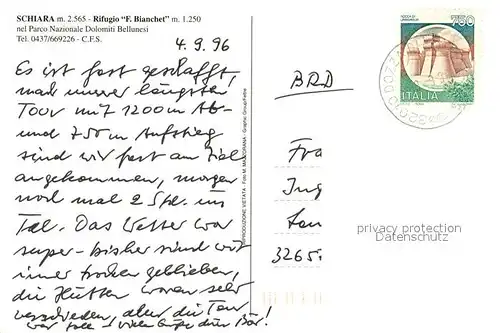 SCHIARA m. 2.565 - Rifugio "F. Bianchet" m. 1.250
nel Parco Nazionale Dolomiti Bellunesi
Tel. 0437/669226 - C.F.S.
4.9.96
Es ist fast geschafft,
nach unserer längsten
Tour mit 1200 m Ab-
und 750 m Aufstieg
sind wir fast am Ziel
angekommen, morgen
noch mal 2 Std. ins
Tal. Das Wetter war
super - bisher sind wir
immer trocken geblieben,
die Hütten waren sehr
verschieden, aber die Tour
war toll! Viele Grüße dein Bär!
RIPRODUZIONE VIETATA - Foto M. MANZORANA - Grafic Group/Feltre
BRD
750
ITALIA
Fra
Ing
3265
privacy protection
Datenschutz